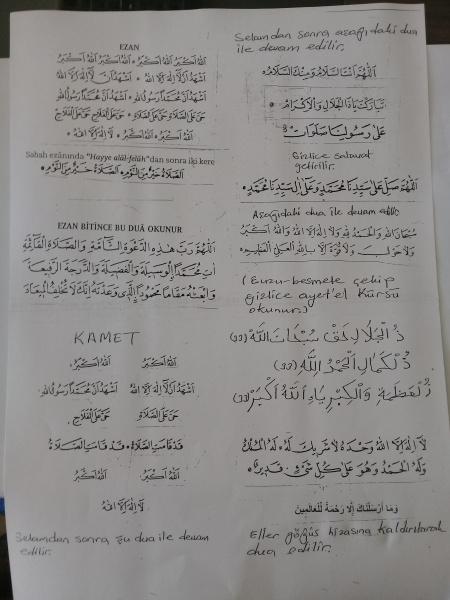 EZAN
اَللّٰهُ اَكْبَرُ اَللّٰهُ اَكْبَرُ • اَللّٰهُ اَكْبَرُ اَللّٰهُ اَكْبَرُ
اَشْهَدُ اَنْ لَٓا اِلٰهَ اِلَّا اللّٰهُ • اَشْهَدُ اَنْ لَٓا اِلٰهَ اِلَّا اللّٰهُ
اَشْهَدُ اَنَّ مُحَمَّدًا رَسُولُ اللّٰهِ • اَشْهَدُ اَنَّ مُحَمَّدًا رَسُولُ اللّٰهِ
حَىَّ عَلَى الصَّلَاةِ • حَىَّ عَلَى الصَّلَاةِ حَىَّ عَلَى الْفَلَاحِ حَىَّ عَلَى الْفَلَاحِ
اَللّٰهُ اَكْبَرُ • اَللّٰهُ اَكْبَرُ • لَٓا اِلٰهَ اِلَّا اللّٰهُ
Sabah ezanında "Hayye alâl-felâh"dan sonra iki kere
اَلصَّلَاةُ خَيْرٌ مِنَ النَّوْمِ • اَلصَّلَاةُ خَيْرٌ مِنَ النَّوْمِ
EZAN BİTİNCE BU DUÂ OKUNUR
اَللّٰهُمَّ رَبَّ هٰذِهِ الدَّعْوَةِ التَّٓامَّةِ وَالصَّلَاةِ الْقَٓائِمَةِ
اٰتِ مُحَمَّدًا الْوَسِيلَةَ وَالْفَضِيلَةَ وَالدَّرَجَةَ الرَّفِيعَةَ
وَابْعَثْهُ مَقَامًا مَحْمُودًا الَّذِى وَعَدْتَهُ اِنَّكَ لَا تُخْلِفُ الْمِيعَادَ
KAMET
اَللّٰهُ اَكْبَرُ اَللّٰهُ اَكْبَرُ
اَشْهَدُ اَنْ لَٓا اِلٰهَ اِلَّا اللّٰهُ اَشْهَدُ اَنَّ مُحَمَّدًا رَسُولُ اللّٰهِ
حَىَّ عَلَى الصَّلَاةِ حَىَّ عَلَى الْفَلَاحِ
قَدْ قَامَتِ الصَّلَاةُ • قَدْ قَامَتِ الصَّلَاةُ
اَللّٰهُ اَكْبَرُ اَللّٰهُ اَكْبَرُ
لَٓا اِلٰهَ اِلَّا اللّٰهُ
Selamdan sonra şu dua ile devam
edilir.
Selamdan sonra aşağıdaki dua
ile devam edilir.
اَللّٰهُمَّ اَنْتَ السَّلَامُ وَمِنْكَ السَّلَامُ
تَبَارَكْتَ يَاذَا الْجَلَالِ وَالْاِكْرَامِ
عَلٰى رَسُولِنَا صَلَوَاتٌ
Gizlice salavat
getirilir.
اَللّٰهُمَّ صَلِّ عَلٰى سَيِّدِنَا مُحَمَّدٍ وَعَلٰٓى اٰلِ سَيِّدِنَا مُحَمَّدٍ
Aşağıdaki dua ile devam edilir
سُبْحَانَ اللّٰهِ وَالْحَمْدُ لِلّٰهِ وَلَٓا اِلٰهَ اِلَّا اللّٰهُ وَاللّٰهُ اَكْبَرُ
وَلَا حَوْلَ وَلَا قُوَّةَ اِلَّا بِاللّٰهِ الْعَلِىِّ الْعَظِيمِ
(Euzu-besmele çekip
gizlice ayet'el Kürsü
okunur.)
ذُ الْجَلَالِ حَقْ سُبْحَانَ اللّٰه (33)
ذُ لْكَمَالِ اَلْحَمْدُ لِلّٰه (33)
ذُ لْعَظَمَةِ وَالْكِبْرِيَاءِ اَللّٰهُ اَكْبَرْ (33)
لَٓا اِلٰهَ اِلَّا اللّٰهُ وَحْدَهُ لَا شَرِيكَ لَهُ • لَهُ الْمُلْكُ
وَلَهُ الْحَمْدُ وَهُوَ عَلٰى كُلِّ شَىْءٍ قَدِيرٌ
وَمَا اَرْسَلْنَاكَ اِلَّا رَحْمَةً لِلْعَالَمِينَ
Eller göğüs hizasına kaldırılarak
dua edilir.